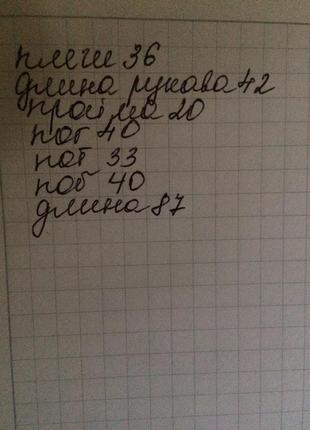 плечи 36
длина рукава 42
пройма 20
пог 40
пот 33
поб 40
длина 87